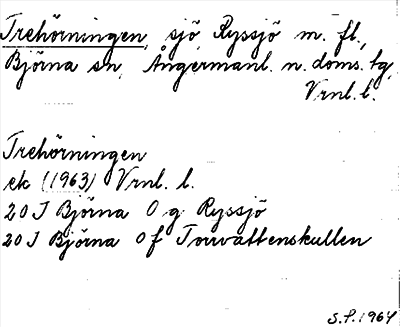 Trehörningen, sjö Ryssjö m. fl.,
Björna sn, Ångermanl. n. doms. tg,
Vrnl. l.
Trehörningen
ek (1963) Vrnl. l.
20 I Björna 0 g Ryssjö
20 I Björna 0 f Torrvattenskullen
S.P. 1964